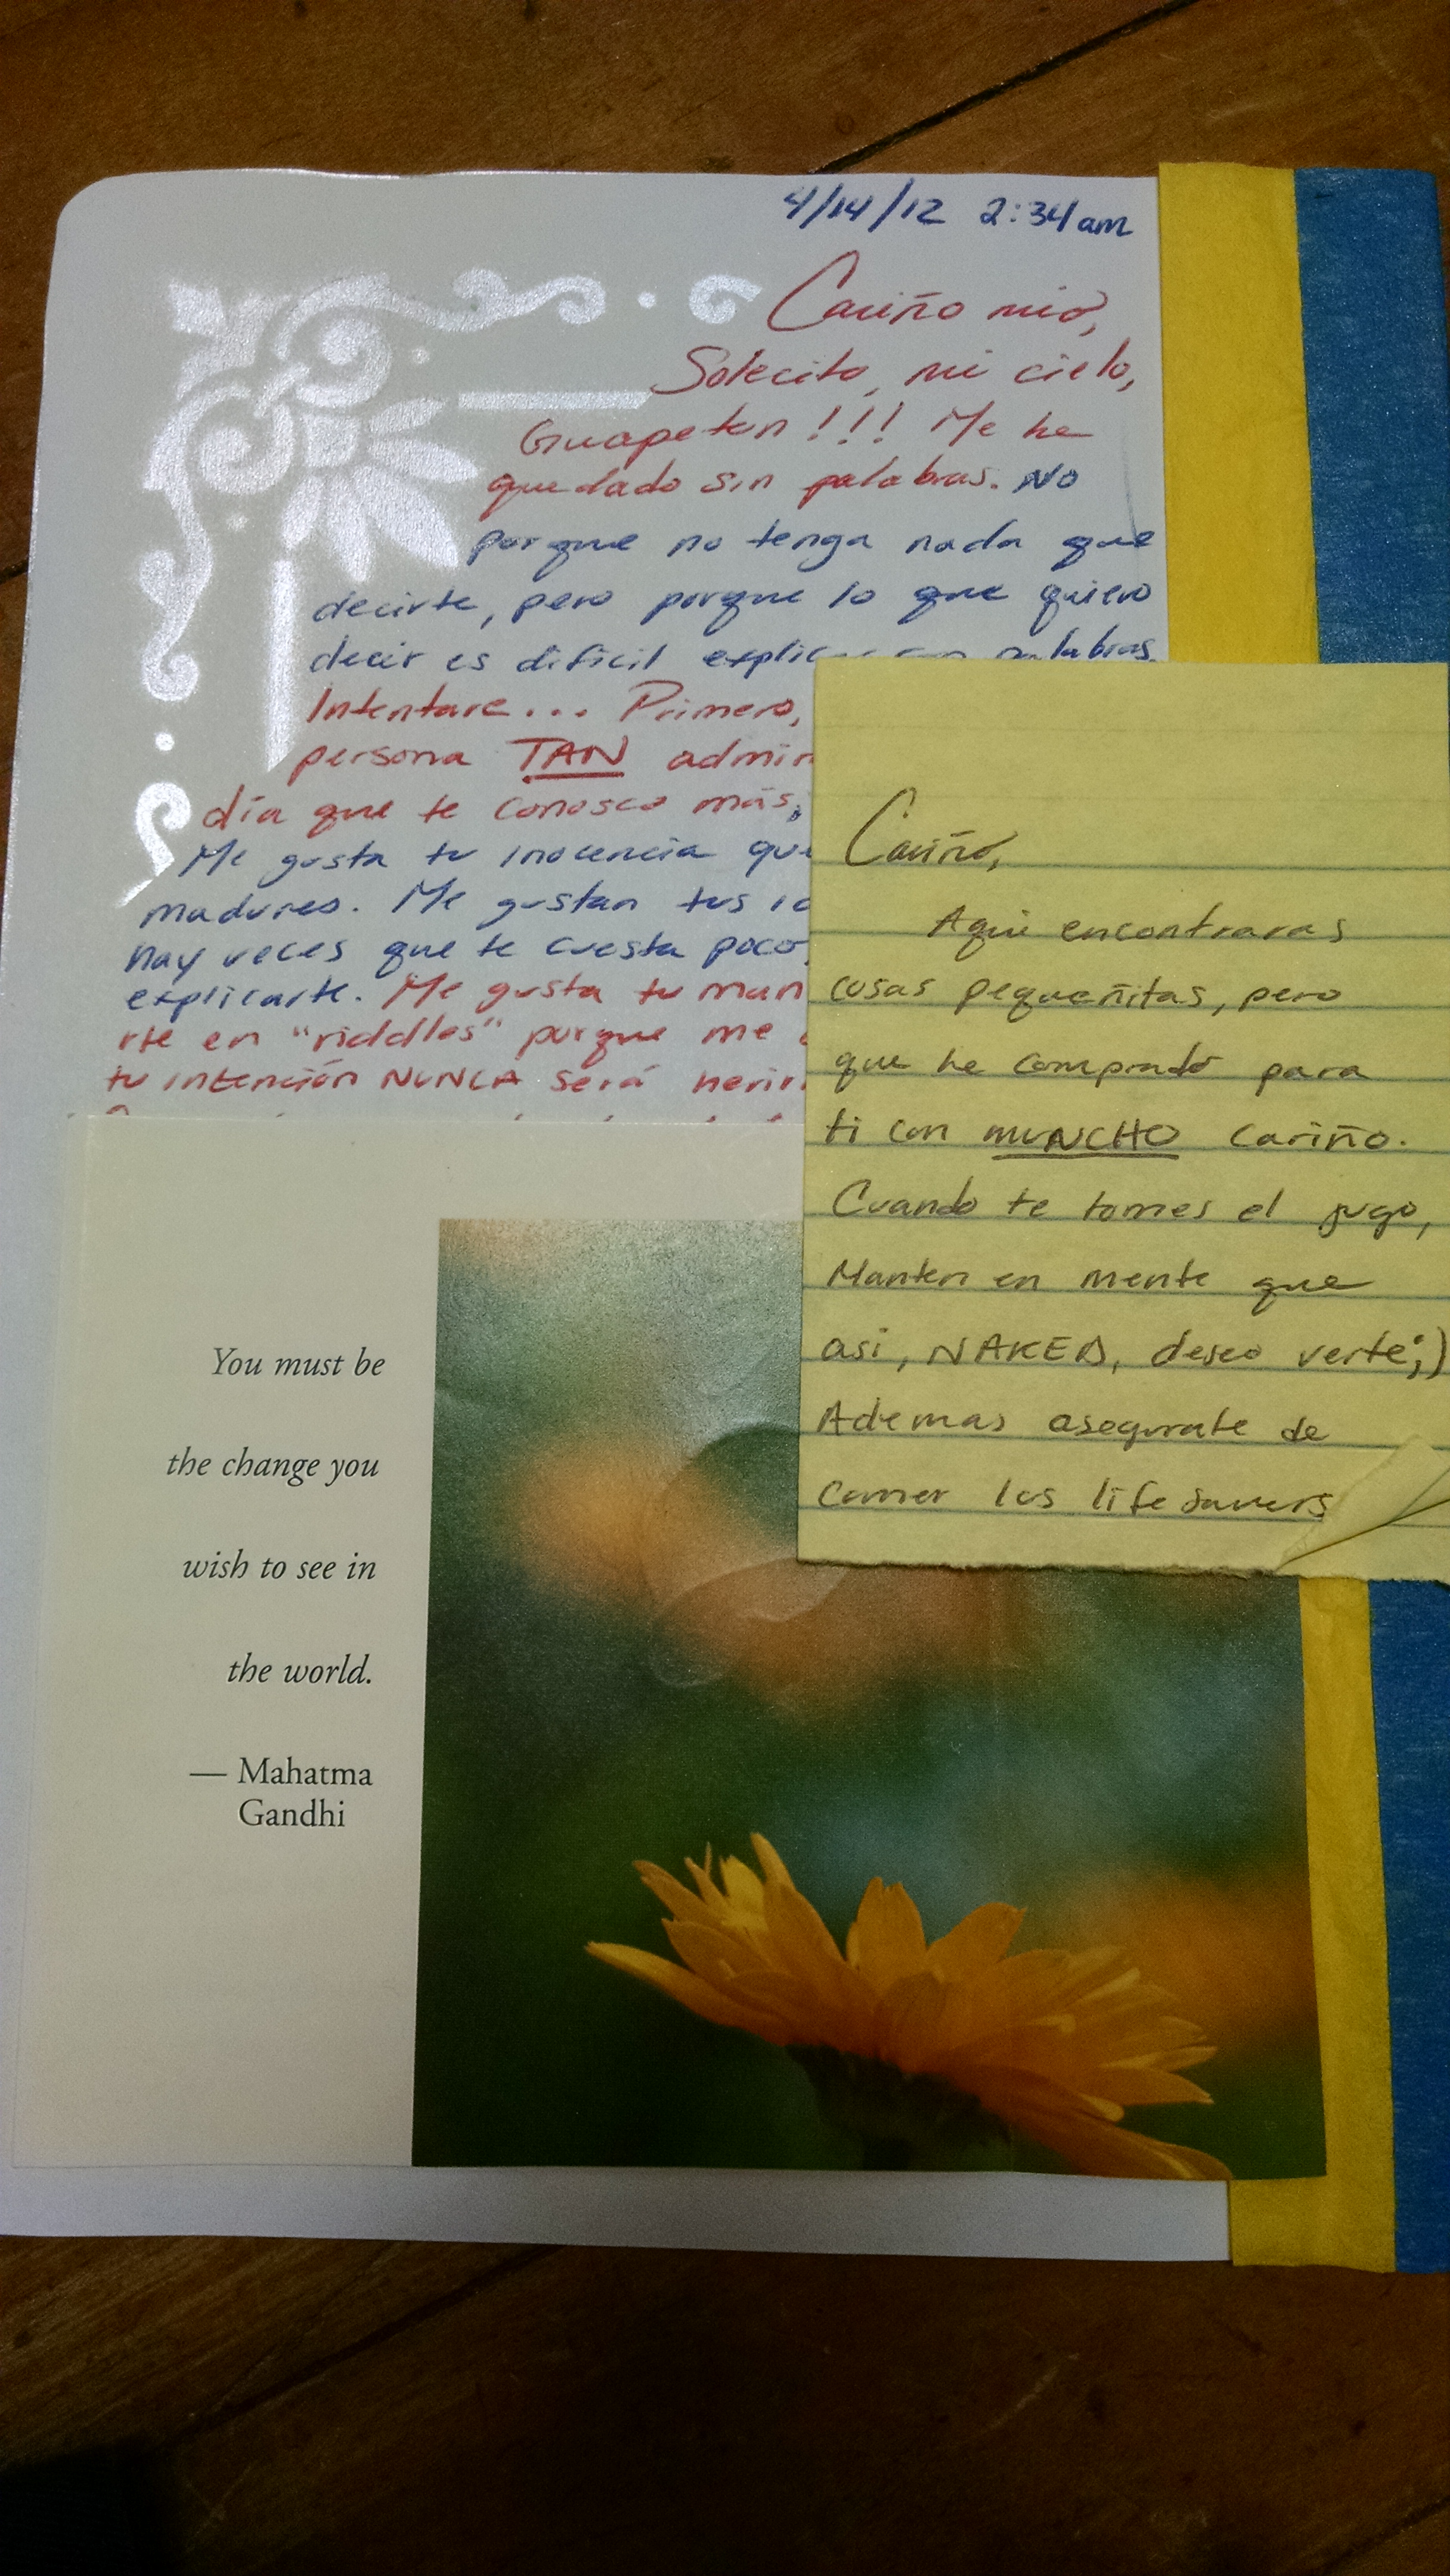 4/14/12 2:34am
Cariño mio,
Solecito, mi cielo,
Guapeton!!! Me he
quedado sin palabras. No
porque no tenga nada que
decirte, pero porque lo que quiero
decir es dificil palabras.
Intentare... Primero,
persona TAN
día que te conosco más,
Me gusta tu inocencia
madures. Me gustan tus
hay veces que te cuesta poco
explicarte. Me gusta tu
rte en "riddles" porque me
tu intención NUNCA será
Cariño,
Aqui encontraras
cosas pequeñitas, pero
que he comprado para
ti con MUNCHO cariño.
Cuando te tomes el jugo,
Manten en mente que
asi, NAKED, deseo verte;)
Ademas asegurate de
comer los lifesavers
You must be
the change you
wish to see in
the world.
— Mahatma
Gandhi